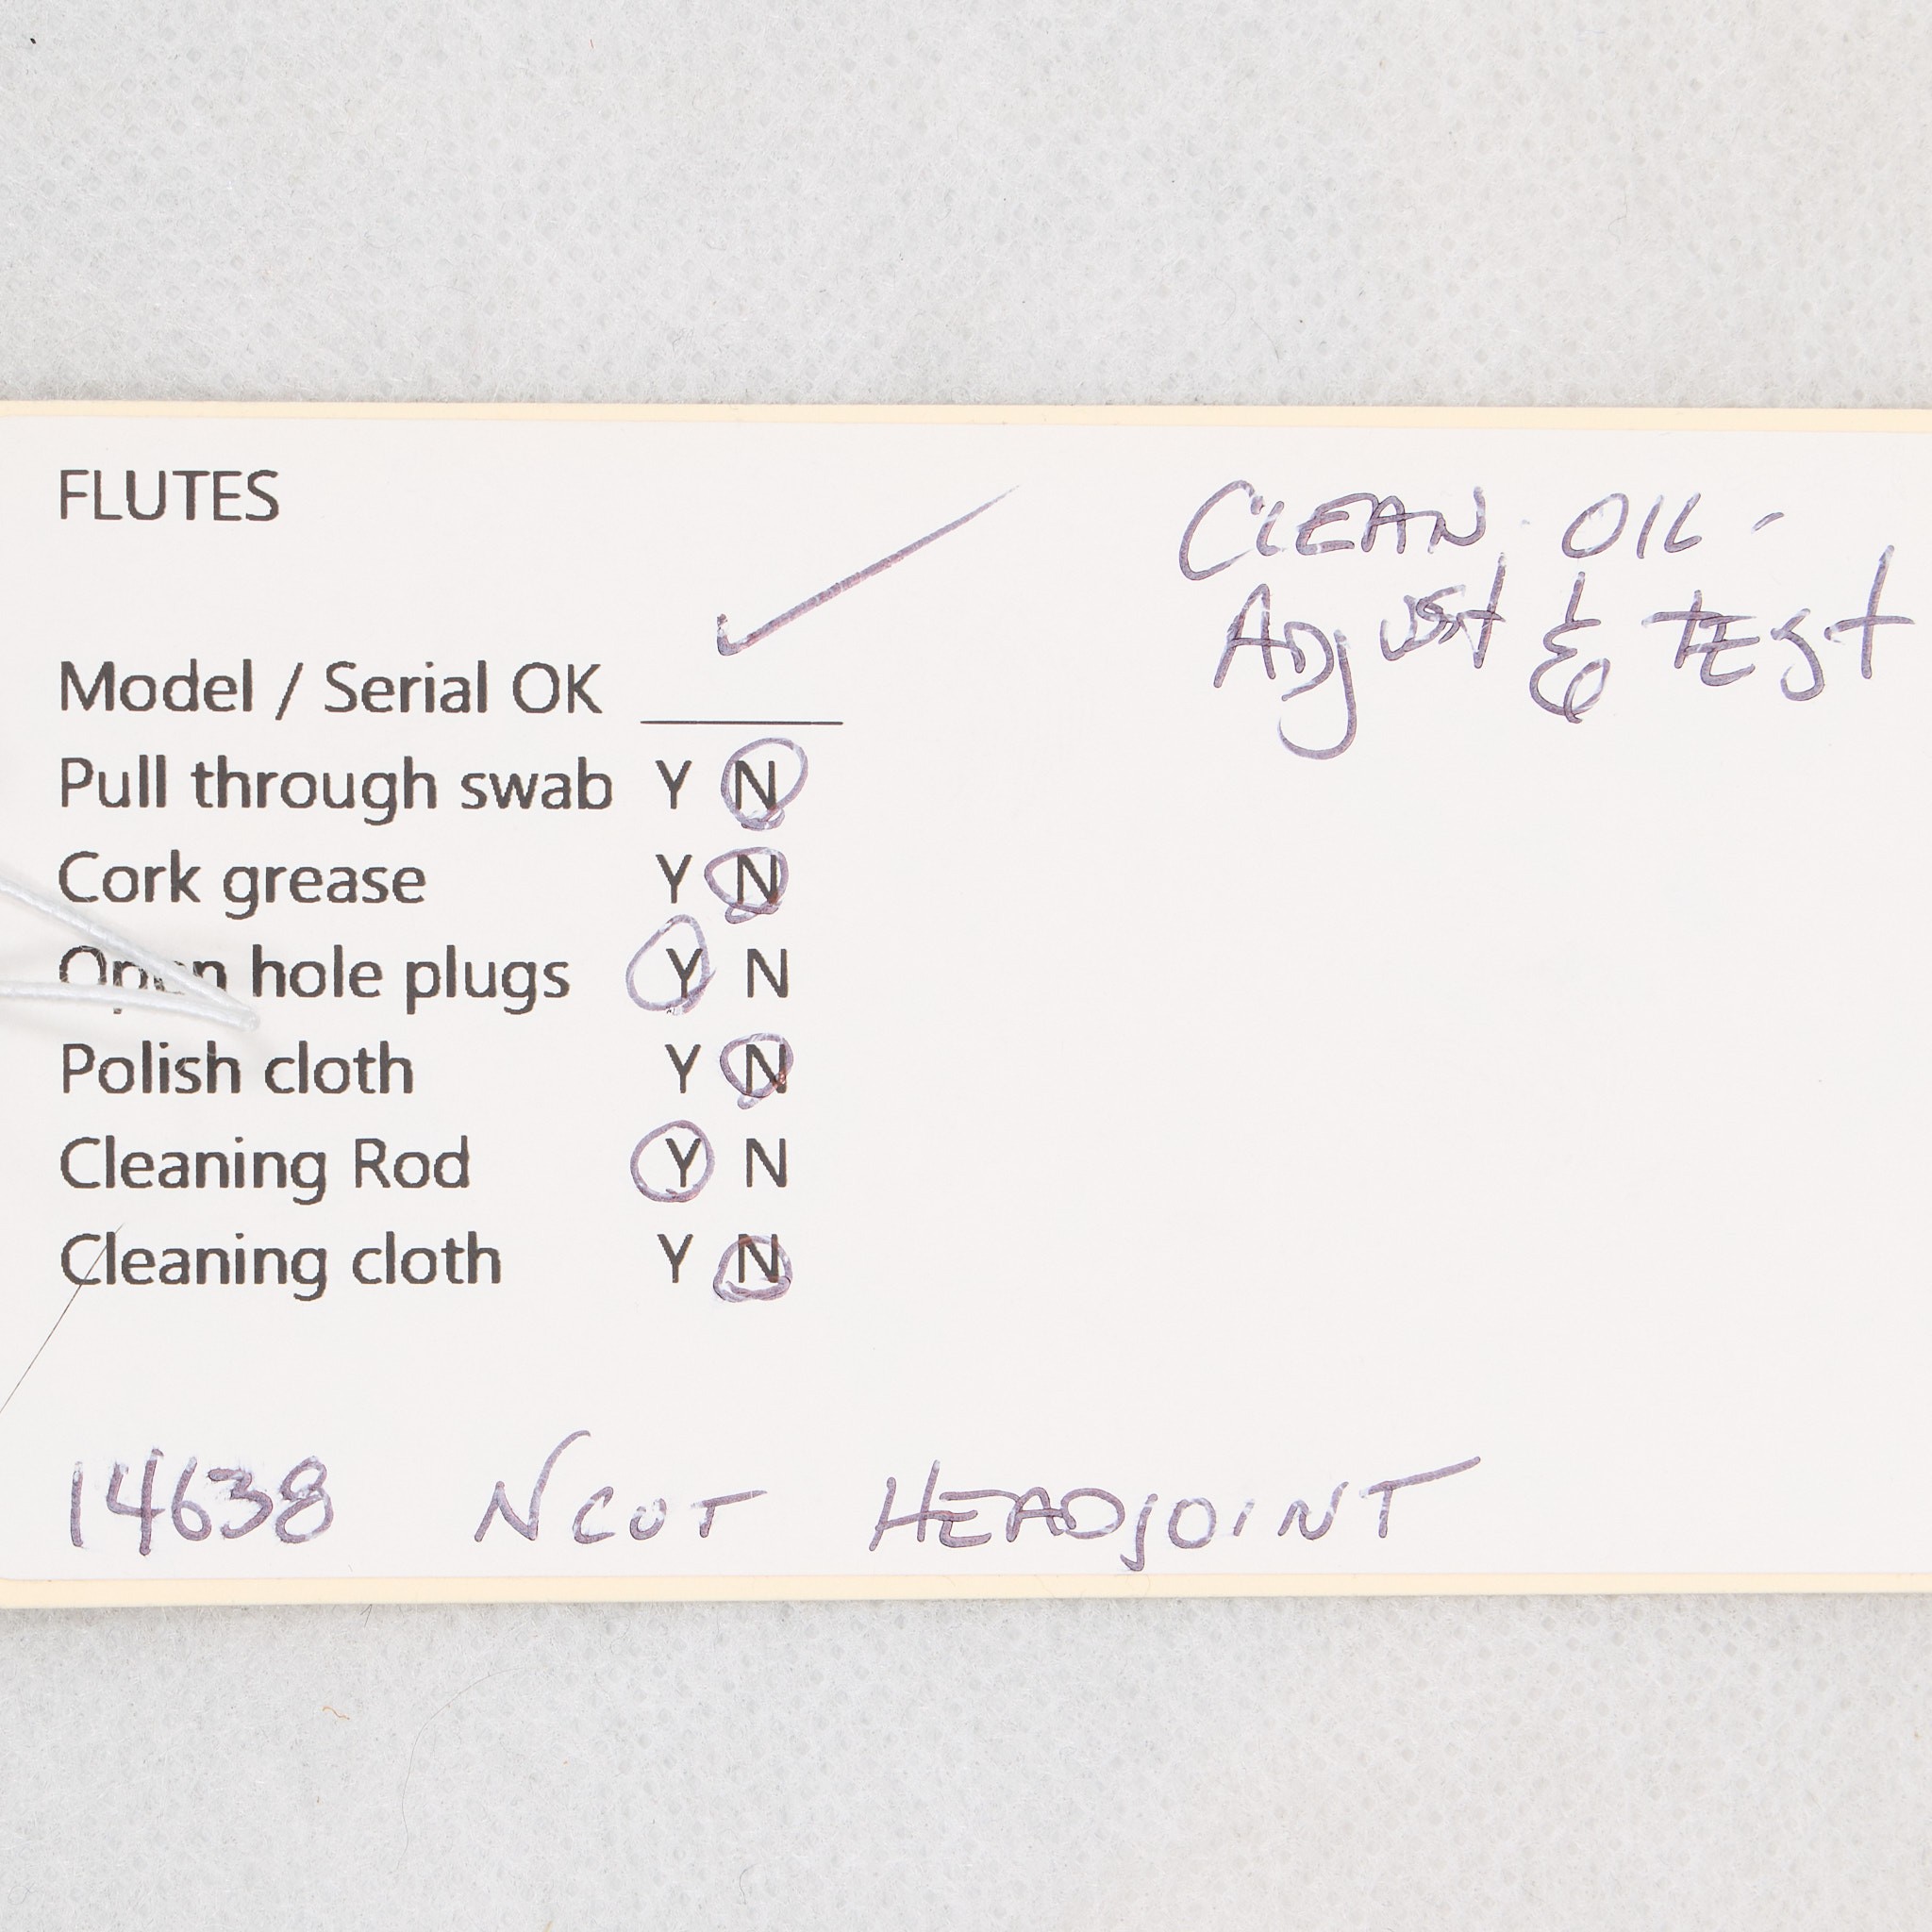 FLUTES
CLEAN - OIL -
ADjUST & TEST
Model / Serial OK ✓
Pull through swab Y N
Cork grease Y N
Open hole plugs Y N
Polish cloth Y N
Cleaning Rod Y N
Cleaning cloth Y N
14638 N CUT HEADjOINT